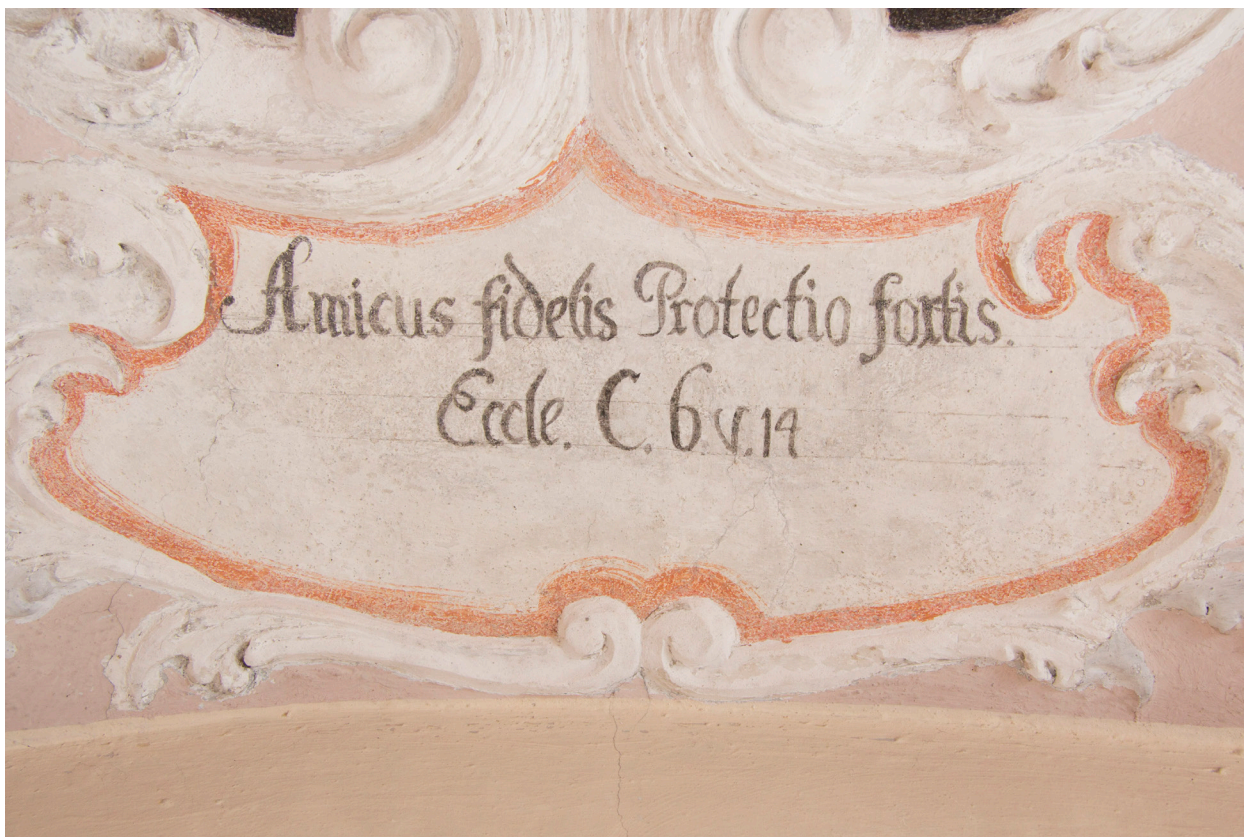 Amicus fidelis Protectio fortis.
Eccle. C. 6 v. 14